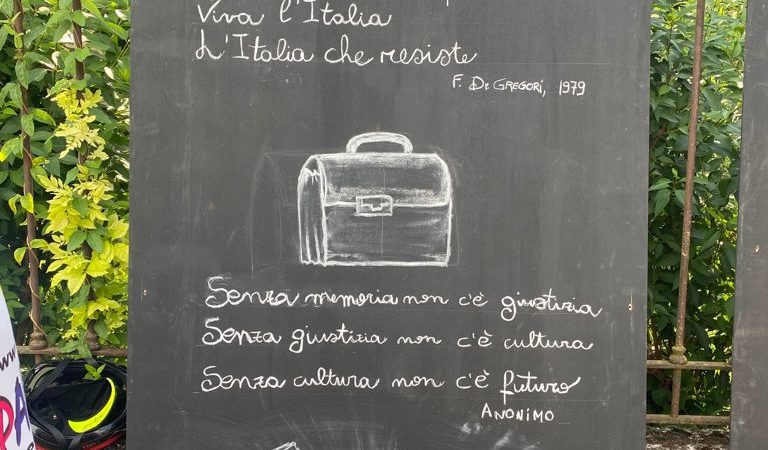 Viva l'Italia
L'Italia che resiste
F. De GREGORI, 1979
Senza memoria non c'è giustizia
Senza giustizia non c'è cultura
Senza cultura non c'è futuro
ANONIMO